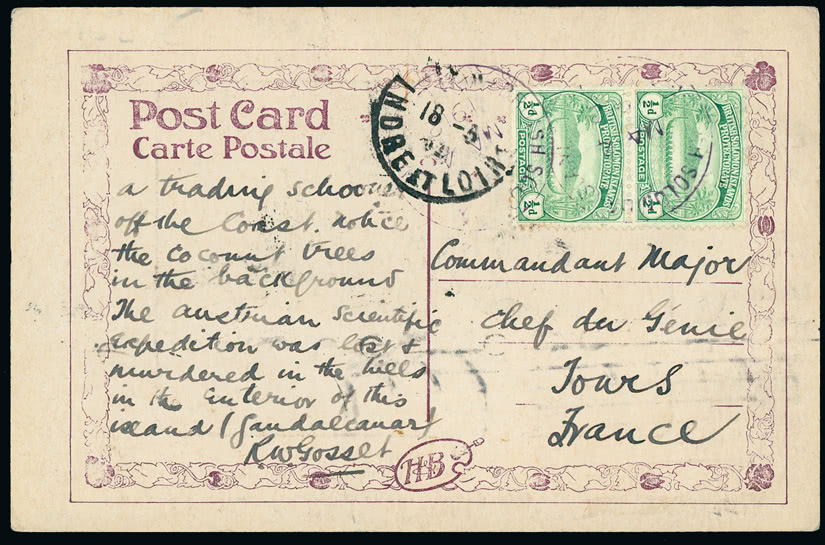 Post Card
Carte Postale
a trading schooner
off the Coast. notice
the coconut trees
in the background
The austrian Scientific
expedition was lost &
murdered in the hills
in the interior of this
island (Gaudalcanar)
RWGosset
Commandant Major
Chef du Génie
Tours
France
H·B
½d ½d
BRITISH SOLOMON ISLANDS
PROTECTORATE
POSTAGE
½d ½d
BRITISH SOLOMON ISLANDS
PROTECTORATE
POSTAGE
18
ET LOIRE